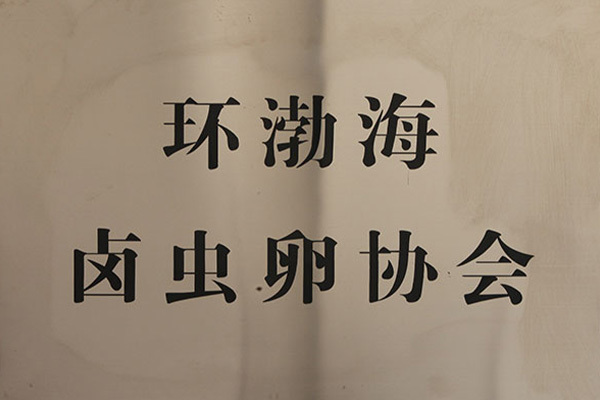 环渤海
卤虫卵协会